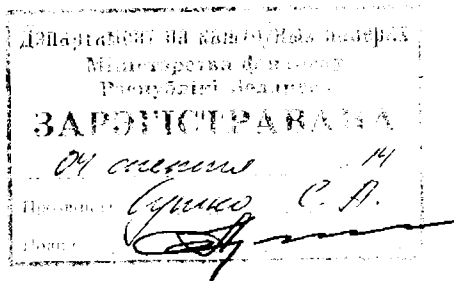 Дэпартамент па каштоўных паперах
Міністэрства фінансаў
Рэспублікі Беларусь
ЗАРЭГІСТРАВАНА
04 14
Сушко С. А.